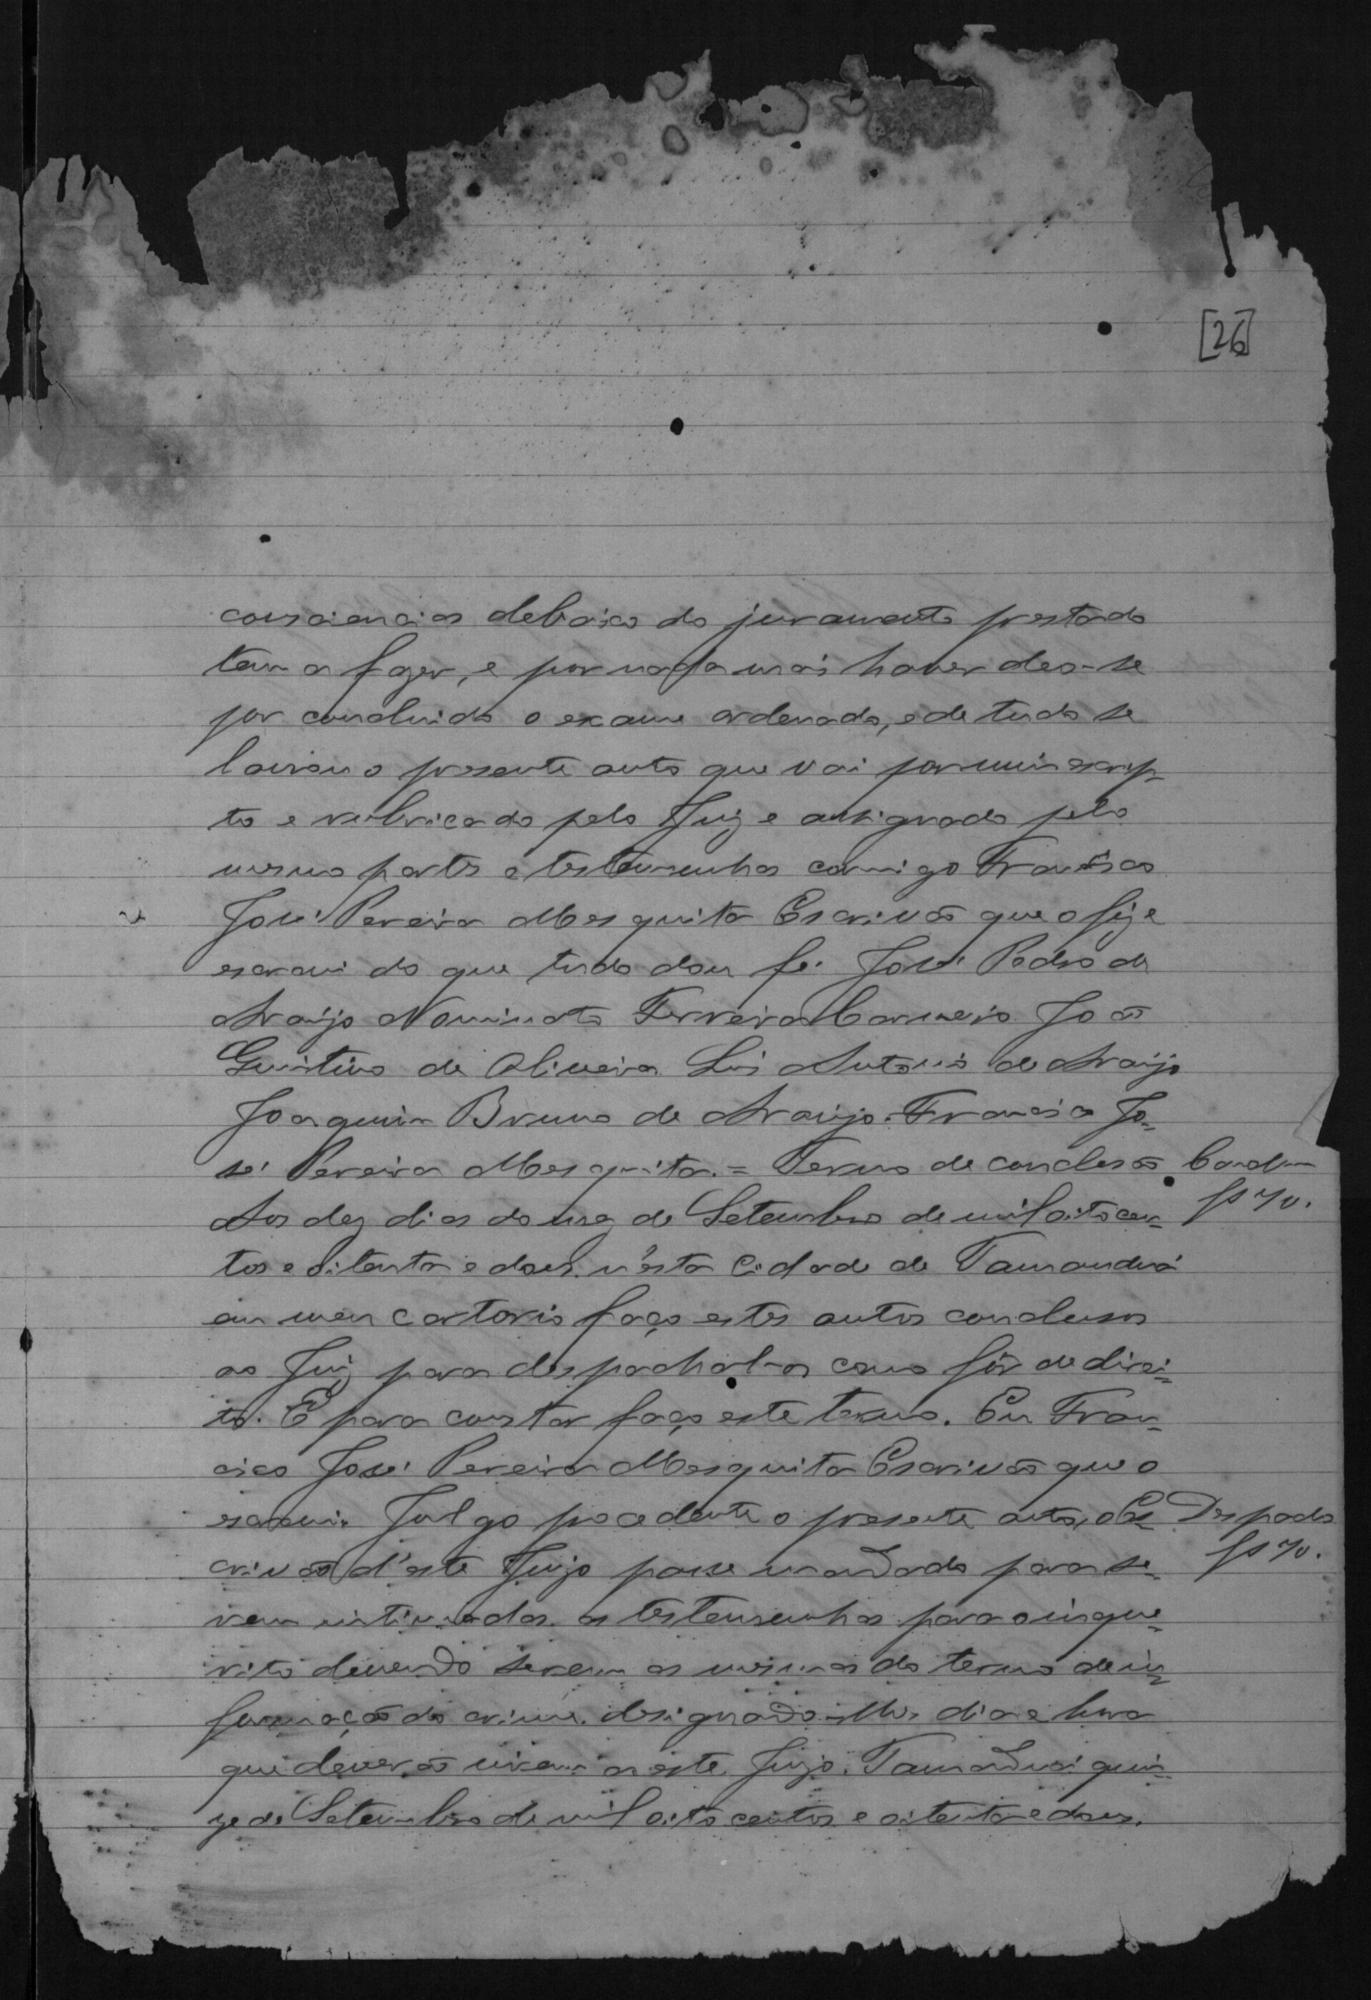 [26]
consciencias debaixo do juramento prestado
tem a fazer, e por nada mais haver deo-se
por concluido o exame ordenado, e de tudo se
lavrou o presente auto que vai por mim escrip-
to e rubricado pelo Juiz e assignado pelo
mesmo partes e testemunhas comigo Francisco
José Pereira Mesquita Escrivão que o fiz e
escrevi do que tudo dou fé. José Pedro de
Araujo Nominato Ferreira Carneiro João
Quintino de Oliveira Luis Antonio de Araujo
Joaquim Bruno de Araujo. Francisco Jo-
sé Pereira Mesquita. = Termo de conclusão
Aos dez dias do mez de Setembro de mil oitocen-
tos e oitenta e dous n'esta Cidade de Tamanduá
em meu cartorio faço estes autos conclusos
ao Juiz para despachal-os como fôr de direi-
to. E para constar faço este termo. Eu Fran-
cisco José Pereira Mesquita Escrivão que o
escrevi. Julgo procedente o presente auto, o Es-
Despacho
fs 70.
crivão d'este Juizo passe mandado para se-
rem intimadas as testemunhas para o inque-
rito devendo serem as mesmas do termo de in-
formação do crime. designado-lhes dia e hora
que deverão virem a este Juizo. Tamanduá quin-
ze de Setembro de mil oito centos e oitenta e dous.